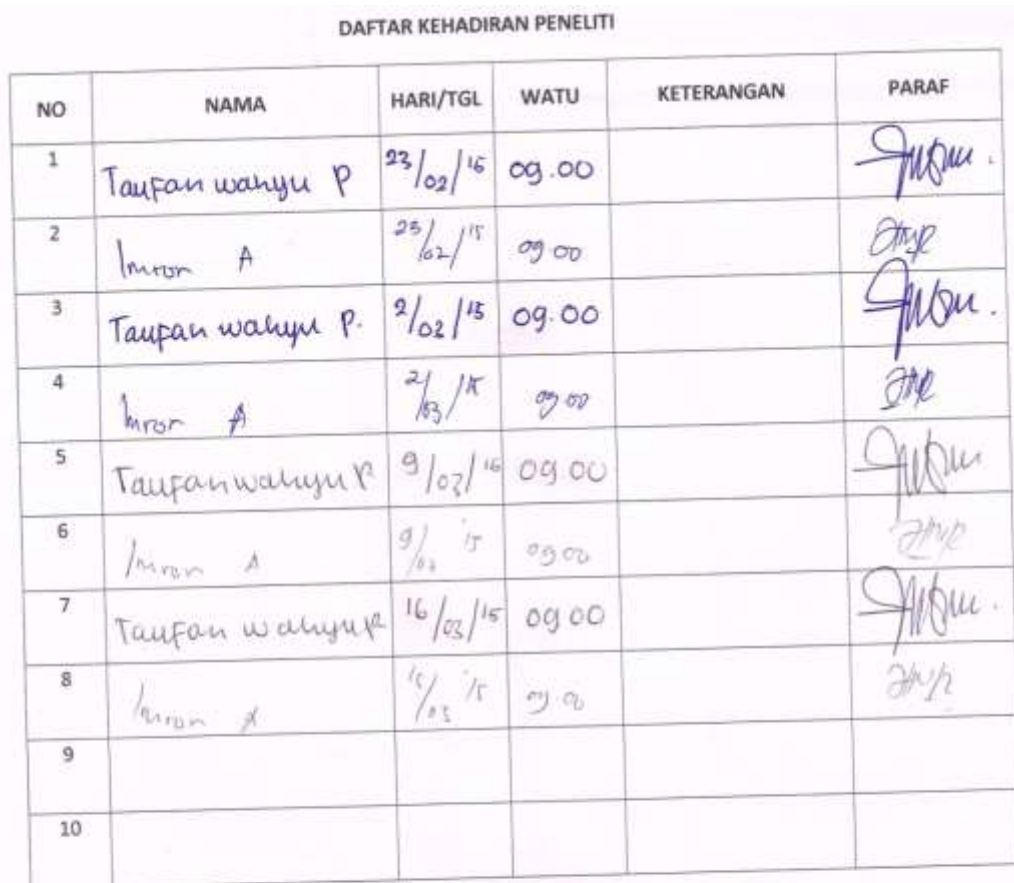 DAFTAR KEHADIRAN PENELITI
NO NAMA HARI/TGL WATU KETERANGAN PARAF
1 Taufan wahyu P 23/02/15 09.00
2 Imron A 23/02/15 09.00
3 Taufan wahyu P. 2/03/15 09.00
4 Imron A 2/03/15 09.00
5 Taufan wahyu P 9/03/15 09.00
6 Imron A 9/03 '15 09.00
7 Taufan wahyu P 16/03/15 09.00
8 Imron A 09.00
9
10